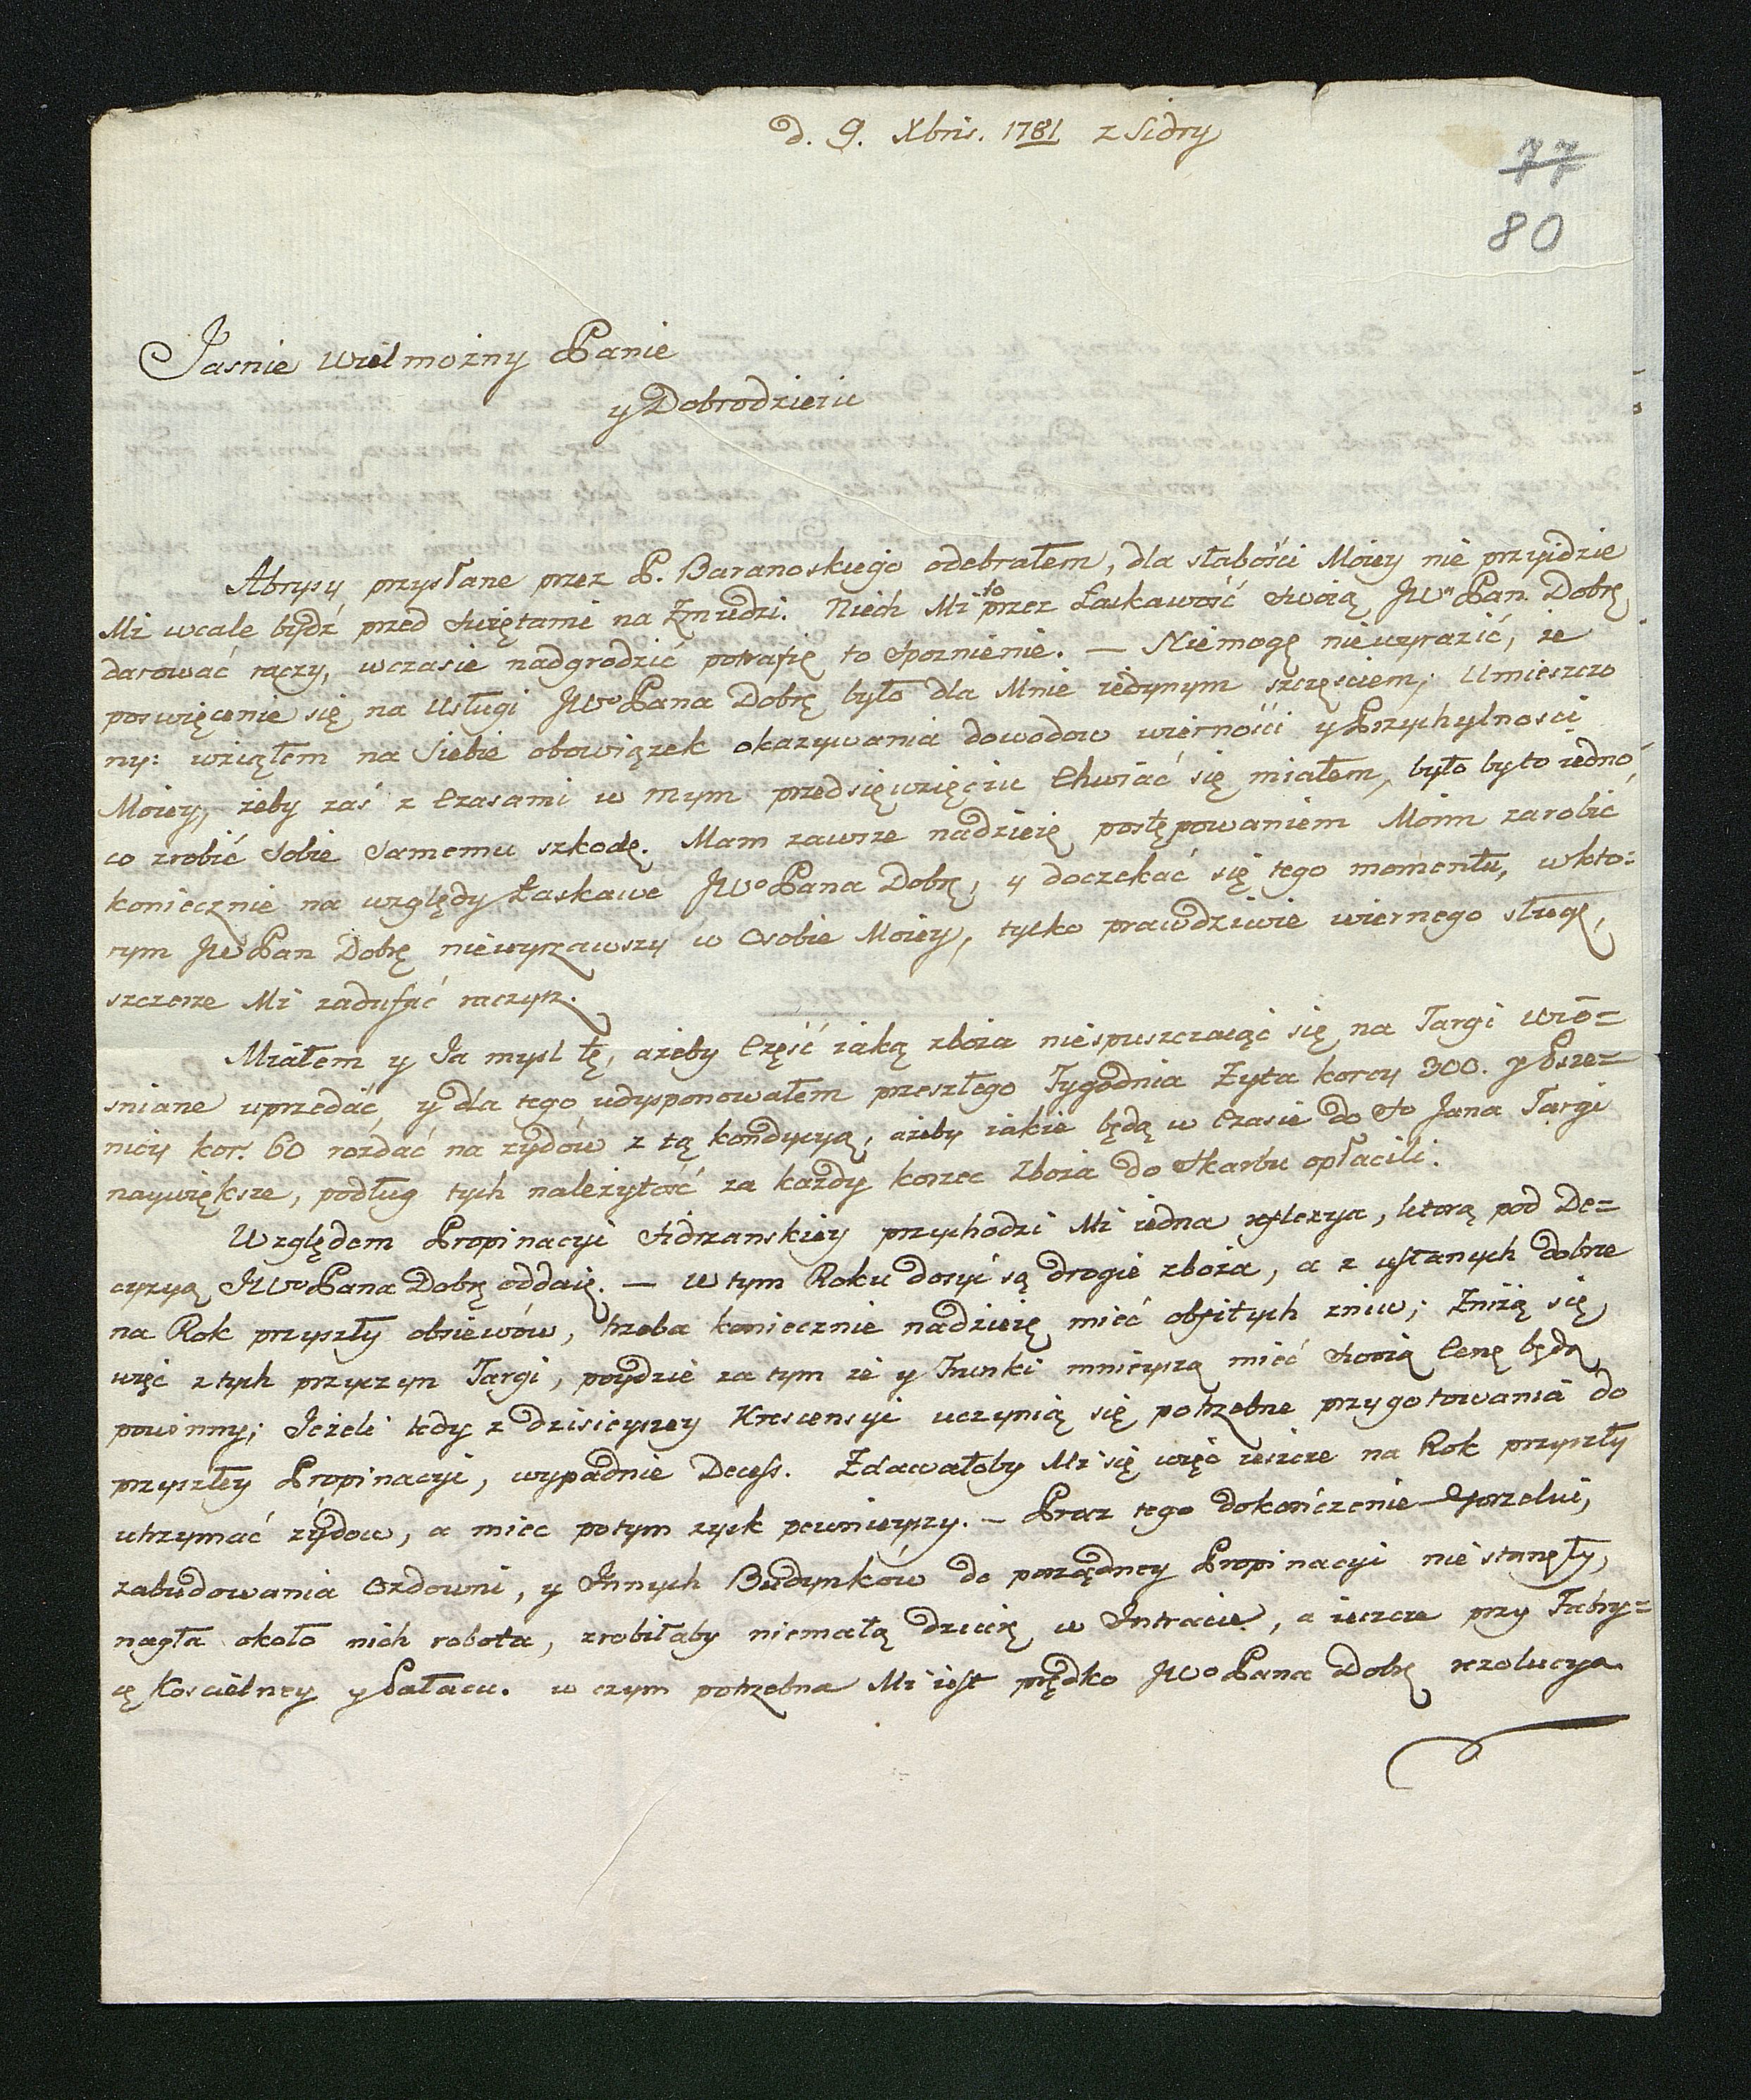 d. 9. Xbris. 1781 z Sidry
77
80
Jasnie Wielmożny Panie
y Dobrodzieiu
Abrysy przysłane przez P. Baranoskiego odebrałem, dla słabości Moiey nie przyidzie
Mi wcale bydź przed Swiętami na Żmudzi. Niech Mi to przez Łaskawość swoią JWn Pan Dobrę
darować raczy, wczasie nadgrodzić potrafię to spoznienie. — Niemogę niewyrazić, że
poswięcenie się na Usługi JWo Pana Dobrę było dla Mnie iedynym szczęsciem; Umieszczo
ny: wziąłem na Siebie obowiązek okazywania dowodow wierności y Przychylności
Moiey, żeby zaś z Czasami w mym przedsięwzięciu Chwiać się miałem, było by to iedno
co zrobić sobie samemu szkodę. Mam zawsze nadzieię postępowaniem Moim zarobić
koniecznie na względy Łaskawe JWo Pana Dobrę, y doczekać się tego momentu, w kto=
rym JW Pan Dobrę niewyrzawszy w Osobie Moiey, tylko prawdziwie wiernego sługę,
szczerze Mi zadufać raczysz.
Miałem y Ja mysl tę, ażeby Część iaką zboża niespuszczaiąc się na Targi wio=
sniane uprzedać, y dla tego udysponowałem przeszłego Tygodnia Żyta korcy 300. y Psze=
nicy kor. 60 rozdać na żydów z tą kondycyą, ażeby iakie będą w Czasie do So Jana Targi
naywiększe, podług tych należytość za każdy korzec Zboża do Skarbu opłacili.
Względem Propinacyi Sidrzanskiey przychodzi Mi iedna reflexya, ktorą pod De=
cyzyą JWo Pana Dobrę oddaię. — W tym Roku dosyć są drogie zboża, a z ustanych dobrze
na Rok przyszły obsiewów, trzeba koniecznie nadzieię mieć obfitych zniw; Zniżą się
więc z tych przyczyn Targi, poydzie za tym że y Trunki mnieyszą mieć swoią Cenę będą
powinny; Jeżeli tedy z dzisieyszey Krescensyi uczynią się potrzebne przygotowania do
przyszłey Propinacyi, wypadnie Decess. Zdawałoby Mi się więc ieszcze na Rok przyszły
utrzymać żydow, a miec potym zysk pewnieyszy. — Przez tego dokończenie Gorzelni,
zabudowania Ozdowni, y Innych Budynków do porządney Propinacyi nie stanęły,
nagła około nich robota, zrobiłaby niemałą dziurę w Intracie, a ieszcze przy Fabry=
cę Koscielney y Pałacu. w czym potrzebna Mi iest prędko JWo Pana Dobrę rezolucya.